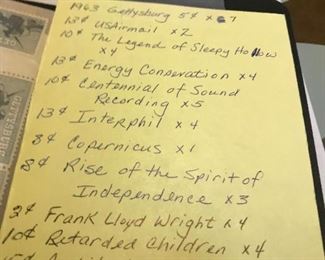 1963 Gettysburg 5¢ x 7
13¢ USAirmail x 2
10¢ The Legend of Sleepy Hollow
x 4
13¢ Energy Conservation x 4
10¢ Centennial of Sound
Recording x 5
13¢ Interphil x 4
8¢ Copernicus x 1
8¢ Rise of the Spirit of
Independence x 3
2¢ Frank Lloyd Wright x 4
10¢ Retarded Children x 4
GETTYSBURG